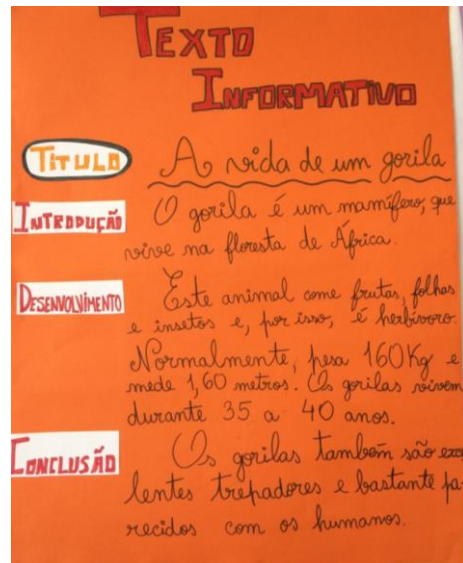 TEXTO
INFORMATIVO
TÍTULO A vida de um gorila
INTRODUÇÃO O gorila é um mamífero, que
vive na floresta de África.
DESENVOLVIMENTO Este animal come frutas, folhas
e insetos e, por isso, é herbívoro.
Normalmente, pesa 160Kg e
mede 1,60 metros. Os gorilas vivem
durante 35 a 40 anos.
CONCLUSÃO Os gorilas também são exce
lentes trepadores e bastante pa
recidos com os humanos.